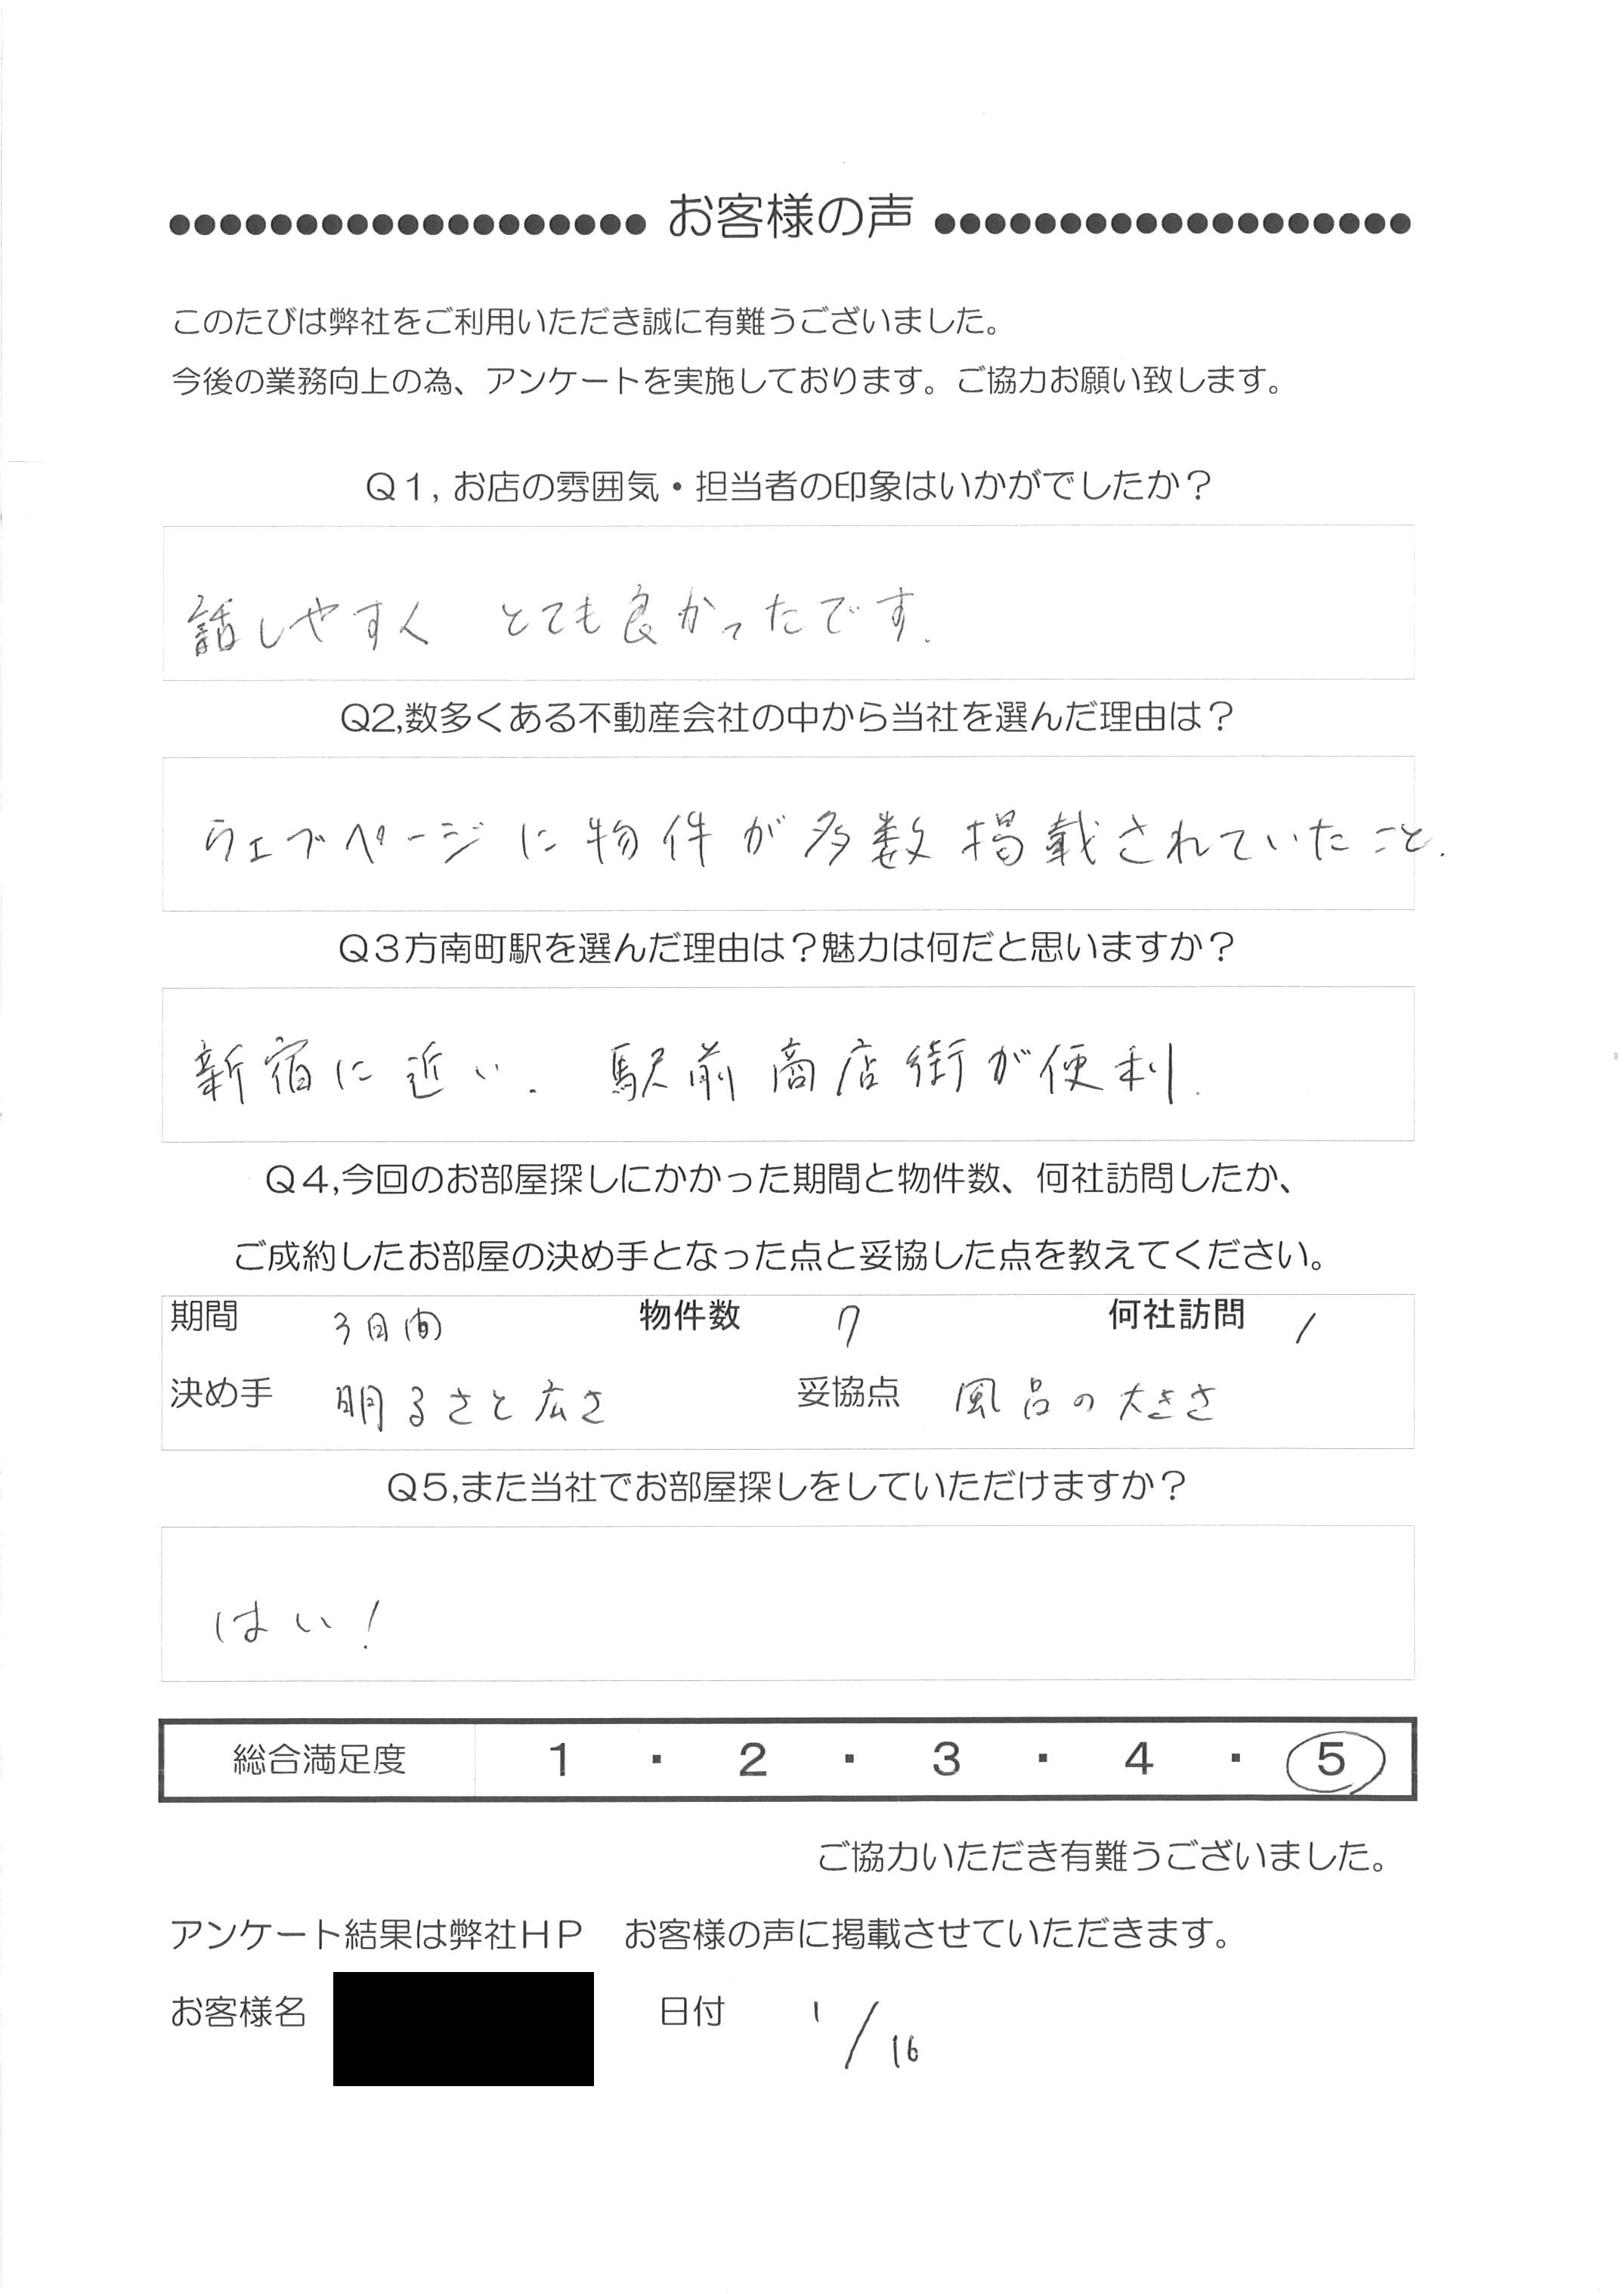 ●●●●●●●●●●●●●●●●●●● お客様の声 ●●●●●●●●●●●●●●●●●●●
このたびは弊社をご利用いただき誠に有難うございました。
今後の業務向上の為、アンケートを実施しております。ご協力お願い致します。
Q1, お店の雰囲気・担当者の印象はいかがでしたか？
話しやすく とても良かったです.
Q2,数多くある不動産会社の中から当社を選んだ理由は？
ウェブページに物件が多数掲載されていたこと.
Q3方南町駅を選んだ理由は？魅力は何だと思いますか？
新宿に近い. 駅前商店街が便利.
Q4,今回のお部屋探しにかかった期間と物件数、何社訪問したか、
ご成約したお部屋の決め手となった点と妥協した点を教えてください。
期間 3日間 物件数 7 何社訪問 1
決め手 明るさと広さ 妥協点 風呂の大きさ
Q5,また当社でお部屋探しをしていただけますか？
はい!
総合満足度 1 ・ 2 ・ 3 ・ 4 ・ 5
ご協力いただき有難うございました。
アンケート結果は弊社HP お客様の声に掲載させていただきます。
お客様名 日付 1/16